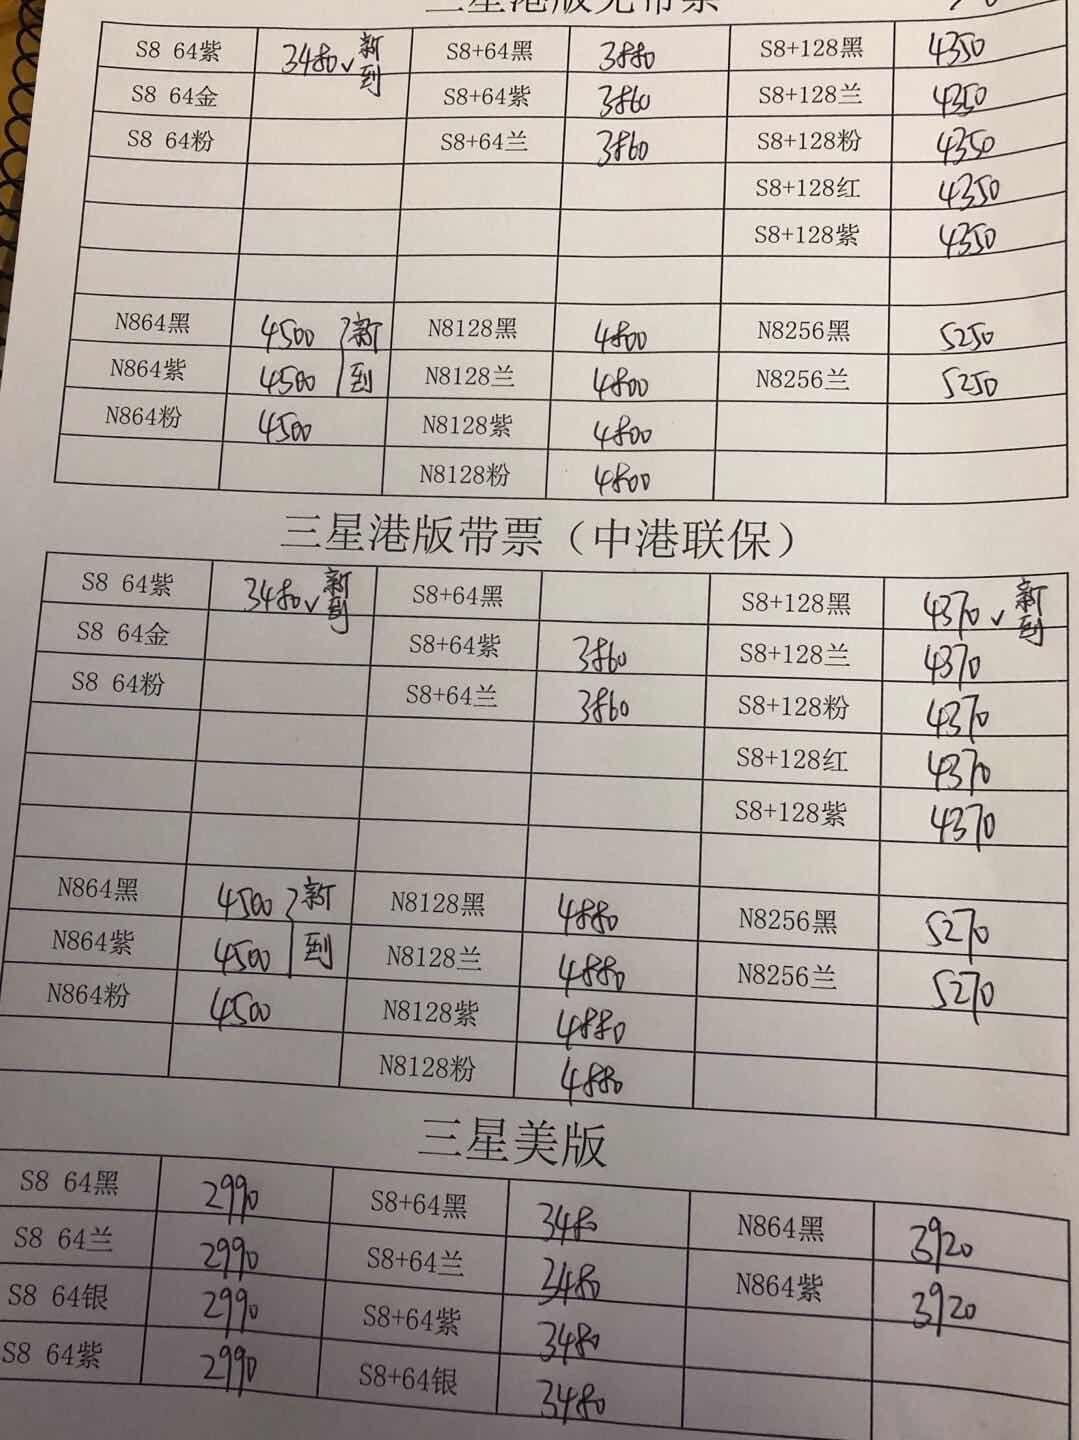 三星港版无带票
S8 64紫 3480√新到 S8+64黑 3880 S8+128黑 4350
S8 64金 S8+64紫 3860 S8+128兰 4350
S8 64粉 S8+64兰 3860 S8+128粉 4350
S8+128红 4350
S8+128紫 4350
N864黑 4500 新 N8128黑 4800 N8256黑 5250
N864紫 4500 到 N8128兰 4800 N8256兰 5250
N864粉 4500 N8128紫 4800
N8128粉 4800
三星港版带票（中港联保）
S8 64紫 3480√新到 S8+64黑 S8+128黑 4370√新到
S8 64金 S8+64紫 3860 S8+128兰 4370
S8 64粉 S8+64兰 3860 S8+128粉 4370
S8+128红 4370
S8+128紫 4370
N864黑 4500 新 N8128黑 4880 N8256黑 5270
N864紫 4500 到 N8128兰 4880 N8256兰 5270
N864粉 4500 N8128紫 4880
N8128粉 4880
三星美版
S8 64黑 2990 S8+64黑 3480 N864黑 3920
S8 64兰 2990 S8+64兰 3480 N864紫 3920
S8 64银 2990 S8+64紫 3480
S8 64紫 2990 S8+64银 3480